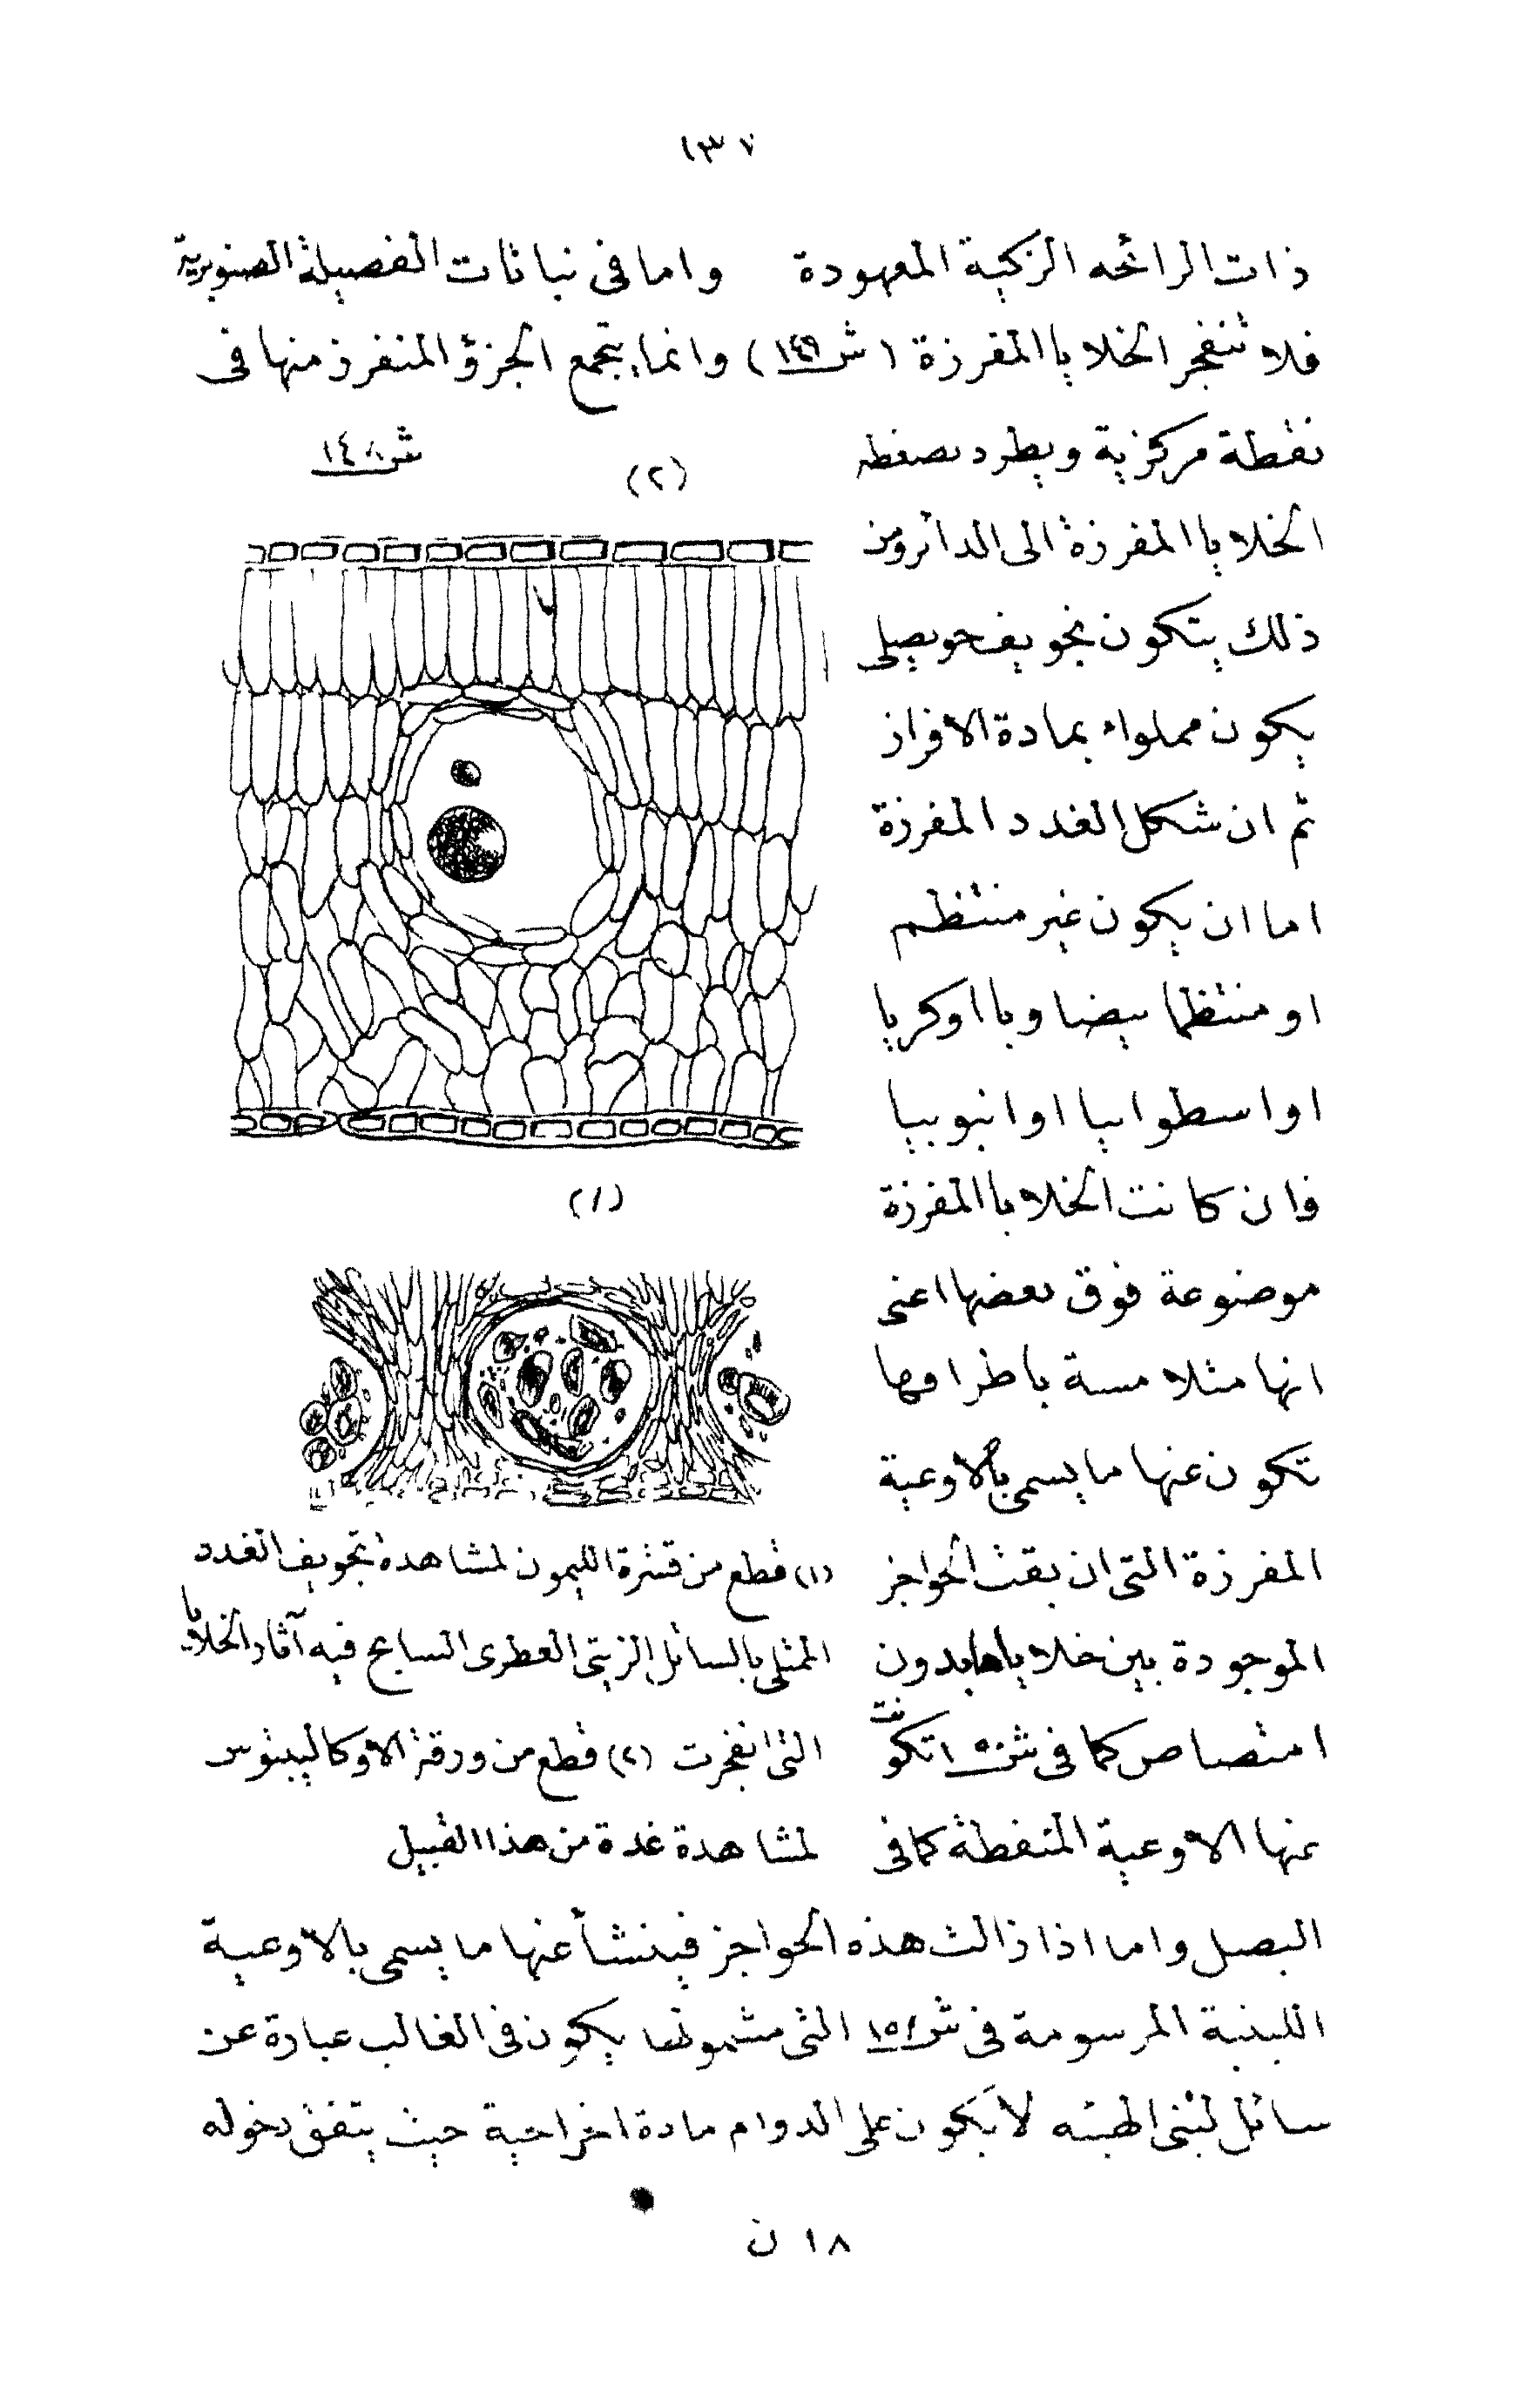 ١٣٧
ذات الرائحه الزكية المعهودة واما فى نباتات الفصيلة الصنوبرية
فلا تنفجر الخلايا المفرزة (ش ١٤٩) وانما يتجمع الجزؤ المنفرز منها فى
نقطة مركزية ويطرد بضغطه
الخلايا المفرزة الى الدائر ومن
ذلك يتكون تجويف حويصلى
يكون مملواء بمادة الافراز
ثم ان شكل الغدد المفرزة
اما ان يكون غير منتظم
او منتظما بيضاويا او كريا
او اسطوانيا او انبوبيا
فان كانت الخلايا المفرزة
موضوعة فوق بعضها اعنى
انها متلامسة باطرافها
تكون عنها ما يسمى بالاوعية
المفرزة التى ان بقت الحواجز
الموجودة بين خلاياها بدون
امتصاص كما فى ش ١٥٠ تكونت
عنها الاوعية المتفطة كما فى
ش ١٤٨
(٢)
(١)
(١) قطع من قشرة الليمون لمشاهدة تجويف الغدد
الممتلى بالسائل الزيتى العطرى السابح فيه آثار الخلايا
التى انفجرت (٢) قطع من ورقة الاوكاليبتوس
لمشاهدة غدة من هذا القبيل
البصل واما اذا زالت هذه الحواجز فينشأ عنها ما يسمى بالاوعية
اللبنية المرسومة فى ش ١٥١ التى مشمولها يكون فى الغالب عبارة عن
سائل لبنى الهيئه لا يكون على الدوام مادة اخراجية حيث يتفق دخوله
١٨ ن